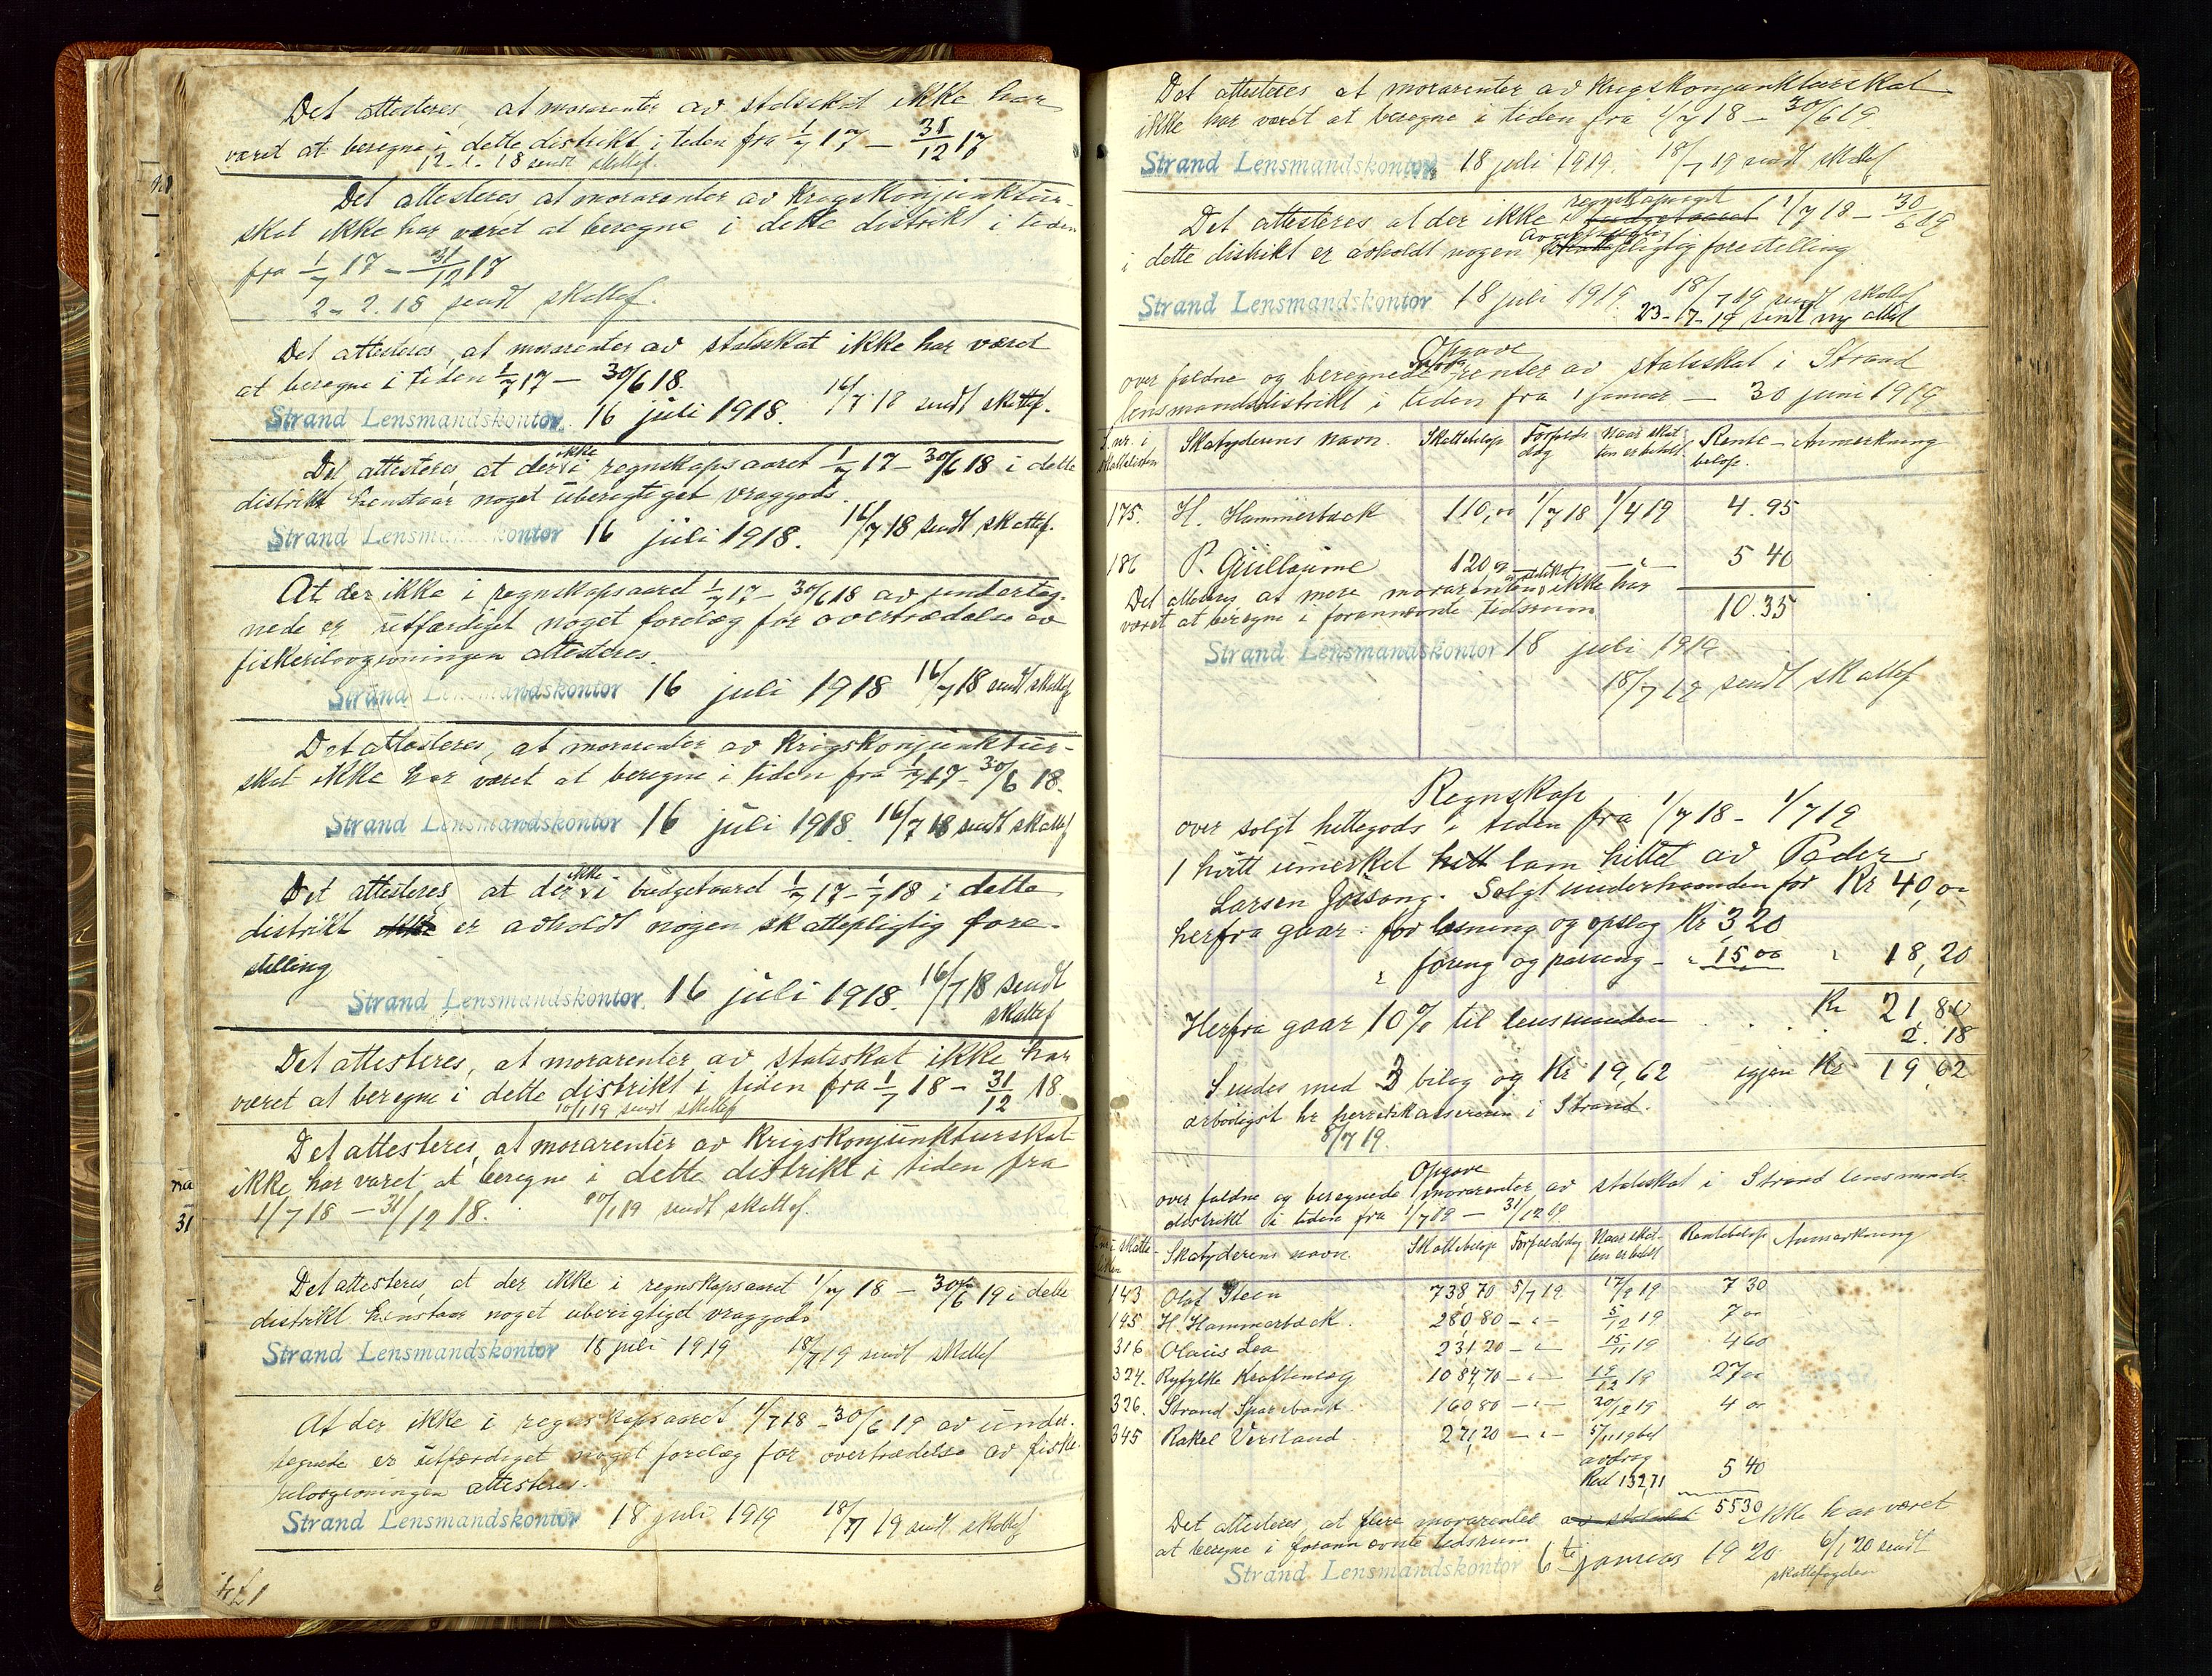 Det attesteres, at morarenter av statsskat ikke har
været at beregne i dette distrikt i tiden fra 1/7 17 – 31/12 17
12-1-18 sendt skattef.
Det attesteres at morarenter av krigskonjunktur-
skat ikke har været at beregne i dette distrikt i tiden
fra 1/7 17 – 31/12 17
2-2.18 sendt skattef.
Det attesteres, at morarenter av statsskat ikke har været
at beregne i tiden 1/7 17 – 30/6 18.
Strand Lensmandskontor. 16 juli 1918. 16/7 18 sendt skattef.
Det attesteres, at der ikke i regnskapsaaret 1/7 17 – 30/6 18 i dette
distrikt henstaar noget uberigtiget vraggods.
Strand Lensmandskontor 16 juli 1918. 16/7 18 sendt skattef.
At der ikke i regnskapsaaret 1/7 17 – 30/6 18 av underteg-
nede er utfærdiget noget forelæg for overtrædelse av
fiskerilovgivningen attesteres.
Strand Lensmandskontor 16 juli 1918 16/7 18 sendt skattef
Det attesteres, at morarenter av krigskonjunktur-
skat ikke har været at beregne i tiden fra 1/7 17 – 30/6 18.
Strand Lensmandskontor 16 juli 1918. 16/7 18 sendt skattef
Det attesteres, at der ikke i budgetaaret 1/7 17 – 1/7 18 i dette
distrikt er avholdt nogen skattepligtig fore-
stilling
Strand Lensmandskontor. 16 juli 1918. 16/7 18 sendt
skattef
Det attesteres, at morarenter av statsskat ikke har
været at beregne i dette distrikt i tiden fra 1/7 18 – 31/12 18.
10/1 19 sendt skattef
Det attesteres, at morarenter av krigskonjunkturskat
ikke har været at beregne i dette distrikt i tiden fra
1/7 18 – 31/12 18. 20/1 19 sendt skattef.
Det attesteres, at der ikke i regnskapsaaret 1/7 18 – 30/6 19 i dette
distrikt henstaar noget uberigtiget vraggods
Strand Lensmandskontor 18 juli 1919 18/7 19 sendt skattef
At der ikke i regnskapsaaret 1/7 18 – 30/6 19 av under-
tegnede er utfærdiget noget forelæg for overtrædelse av fiske-
rilovgivningen attesteres.
Strand Lensmandskontor 18 juli 1919 18/7 19 sendt skattef
Det attesteres at morarenter av krigskonjunkturskat
ikke har været at beregne i tiden fra 1/7 18 – 30/6 19.
Strand Lensmandskontor. 18 juli 1919 18/7 19 sendt skattef
Det attesteres at der ikke i regnskapsaaret budgetaaret 1/7 18 – 30/6 19
i dette distrikt er avholdt nogen avgiftspligtig forestilling
Strand Lensmandskontor 18 juli 1919. 18/7 19 sendt skattef
23-7-19 sendt ny attest
Opgave
over faldne og beregnede morarenter av statsskat i Strand
lensmandsdistrikt i tiden fra 1 januar – 30 juni 1919
L. nr. i skattelisten Skatyderens navn. Skattebeløp Forfaldsdag Naar skatten er betalt. Rentebeløp. Anmerkning
175. H. Hammerbæck 110,00 1/7 18 1/4 19 4.95
186 P. Guillaume 120 00 – " – – " – 5 40
Det attesteres at mere morarenter av statsskat ikke har
været at beregne i forannævnte tidsrum 10.35
Strand Lensmandskontor 18 juli 1919
18/7 19 sendt skattef
Regnskap
over solgt hittegods i tiden fra 1/7 18 – 1/7 19
1 hvitt umerket lam hittet av Peder
Larsen Jøssang. Solgt underhaanden for Kr 40,00
herfra gaar: for løsning og opslag Kr 3,20
" foring og passing – " 15 00 " 18,20
Kr 21,80
Herfra gaar 10% til lensmanden . . . 2.18
igjen Kr 19,62
Sendes med 3 bilag og Kr 19,62
ærbødigst hr herredskassereren i Strand.
8/7 19.
Opgave
over faldne og beregnede morarenter av statsskat i Strand lensmands-
distrikt i tiden fra 1/7 19 – 31/12 19.
Skatyderens navn. Skattebeløp Forfaldsdag Naar skatten er betalt Rentebeløp Anmerkning
143 Olaf Steen 738 70 5/7 19 17/9 19 7 30
195 H. Hammerbæck. 280 80 – " – 5/12 19 7 00
316 Olaus Lea 231 20 – " – 15/11 19 4 60
324. Ryfylke Kraftanlæg 1084,70 – " – 19/12 19 27 00
326. Strand Sparebank. 160 80 – " – 20/12 19 4 00
345 Rakel Versland 271,20 – " – 5/11 19 bet
avdrag
Rest 132,71 5 40
55 30
Det attesteres, at flere morarenter av statsskat ikke har været
at beregne i forannævnte tidsrum
Strand Lensmandskontor 6te januar 1920. 6/1 20 sendt
skattefogden